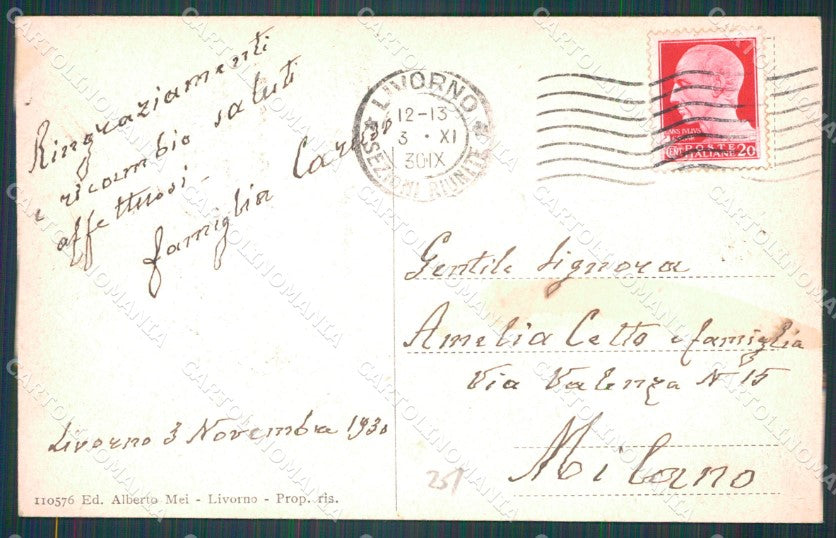 Ringraziamenti
e ricambio saluti
affettuosi -
famiglia Caruso
Livorno 3 Novembre 1930
110576 Ed. Alberto Mei - Livorno - Prop. ris.
LIVORNO
12-13
3 · XI
30 IX
SEZIONI RIUNITE
POSTE
CENT ITALIANE 20
Gentile Signora
Amelia Cetto e famiglia
Via Valenza N 15
Milano
251
CARTOLINOMANIA